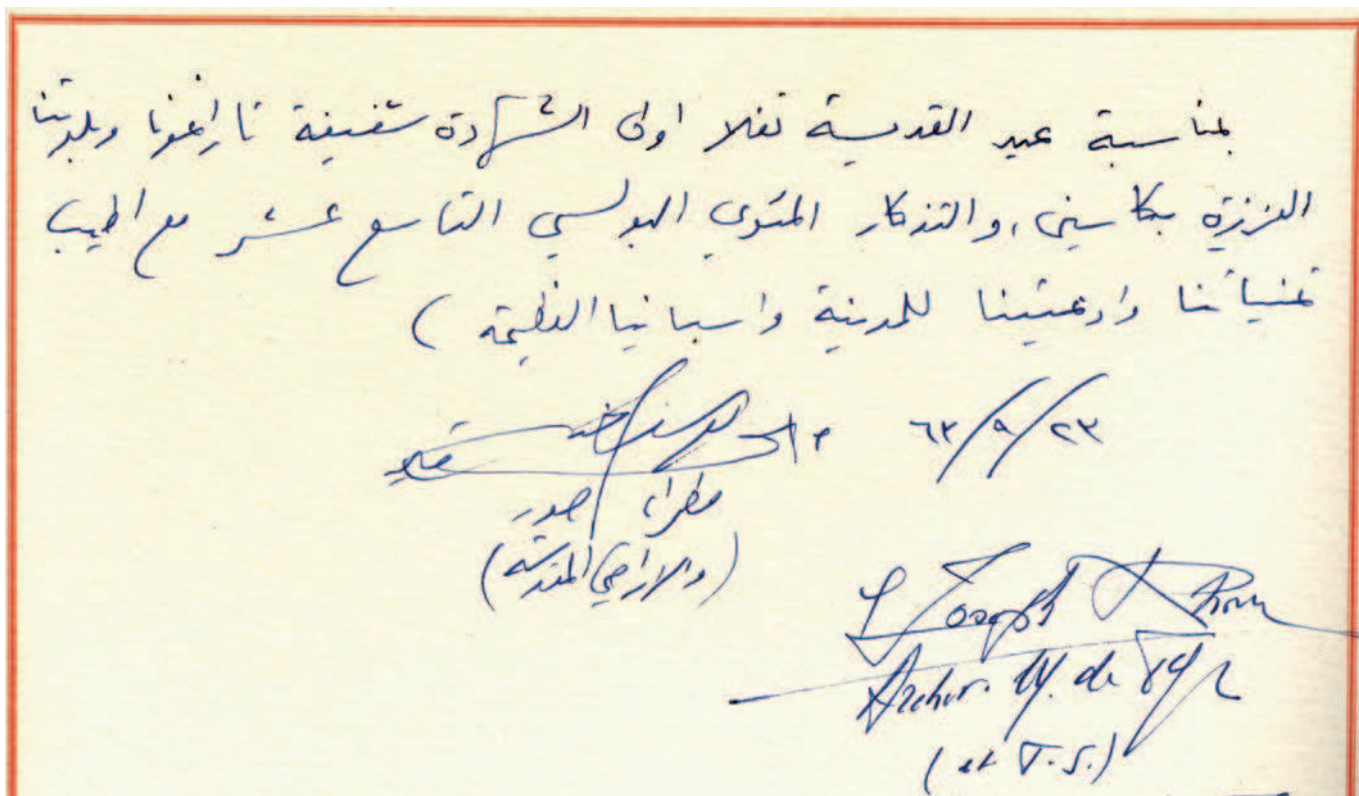 بمناسبة عيد القديسة تقلا اولى الشهادة شفيعة تاراغونا وبلدتنا
العزيزة بكاسين، والتذكار المئوي البولسي التاسع عشر مع اطيب
تمنياتنا وادعيتنا للمدينة واسبانيا العظيمة)
٢٣/٩/٦٣
مطران صور
(والاراضي المقدسة)
Joseph
Archev. M. de Tyr
(et T.S.)